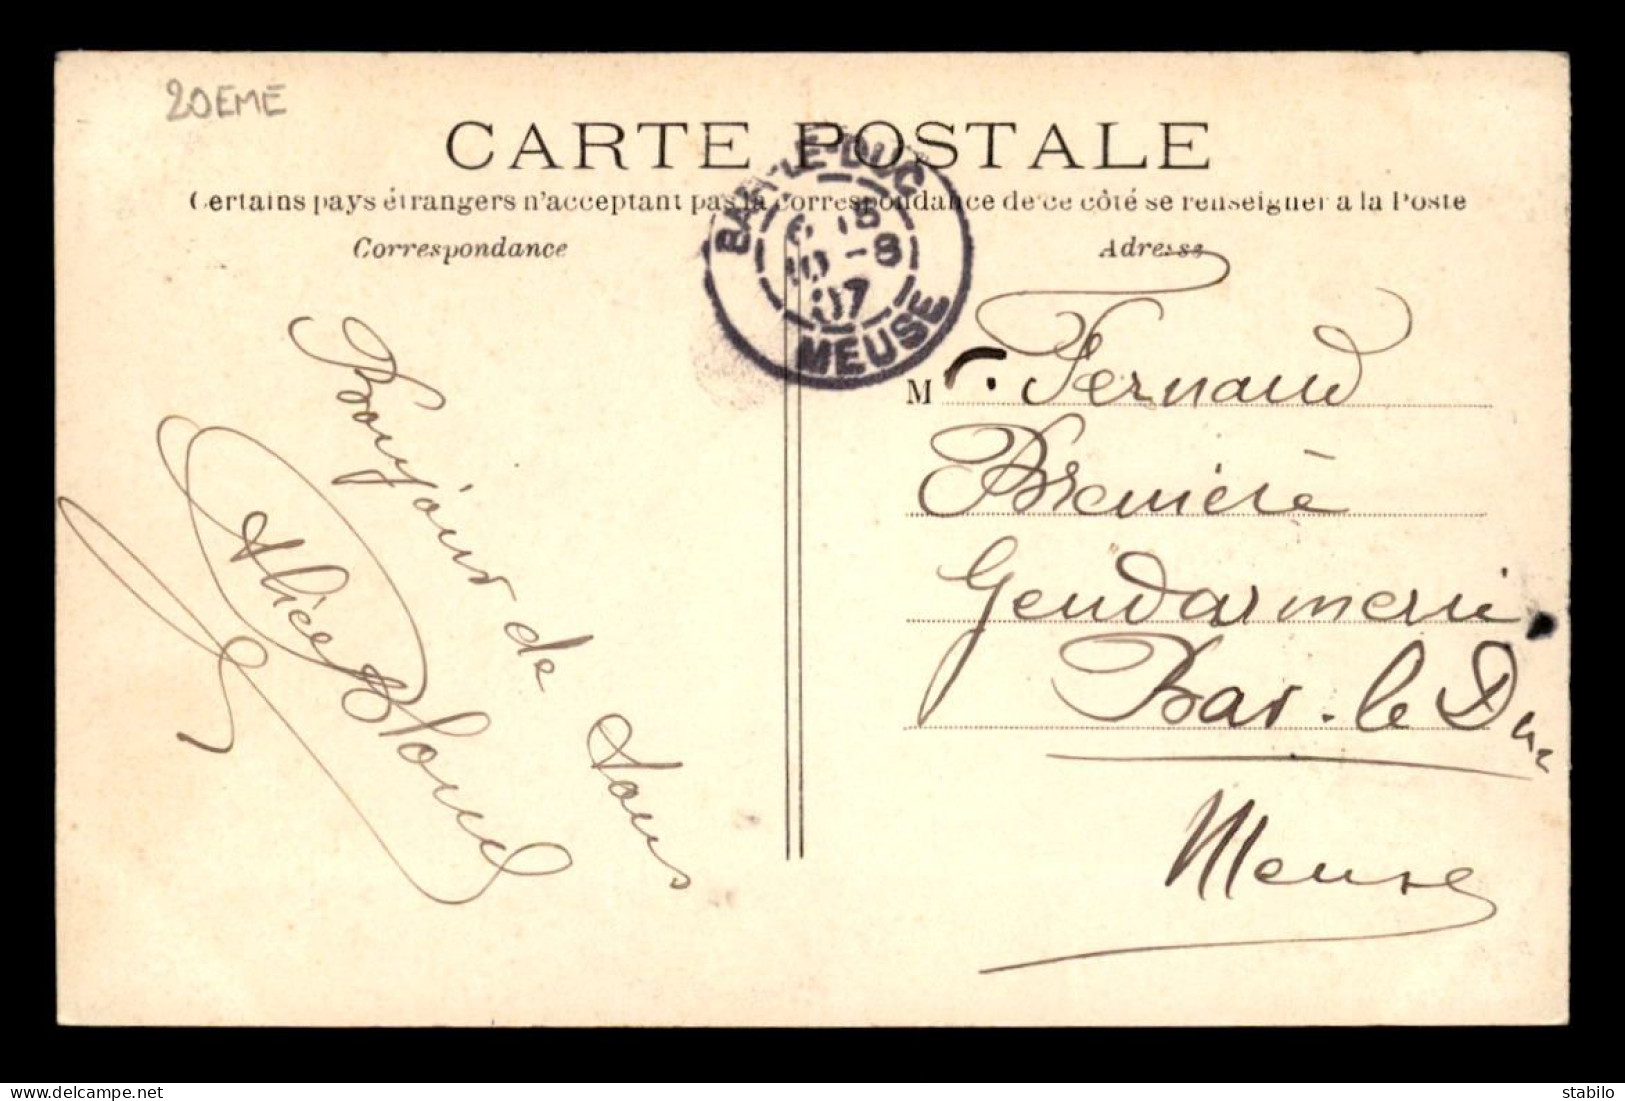 20EME
CARTE POSTALE
Certains pays étrangers n'acceptant pas la correspondance de ce côté se renseigner à la Poste
Correspondance
Adresse
BAR-LE-DUC
10 -8
07
MEUSE
Mr. Fernand
Bremière
Gendarmerie
Bar-le Duc
Meuse
Bonjour de nous
Alice Blond
delcampe.net
stabilo